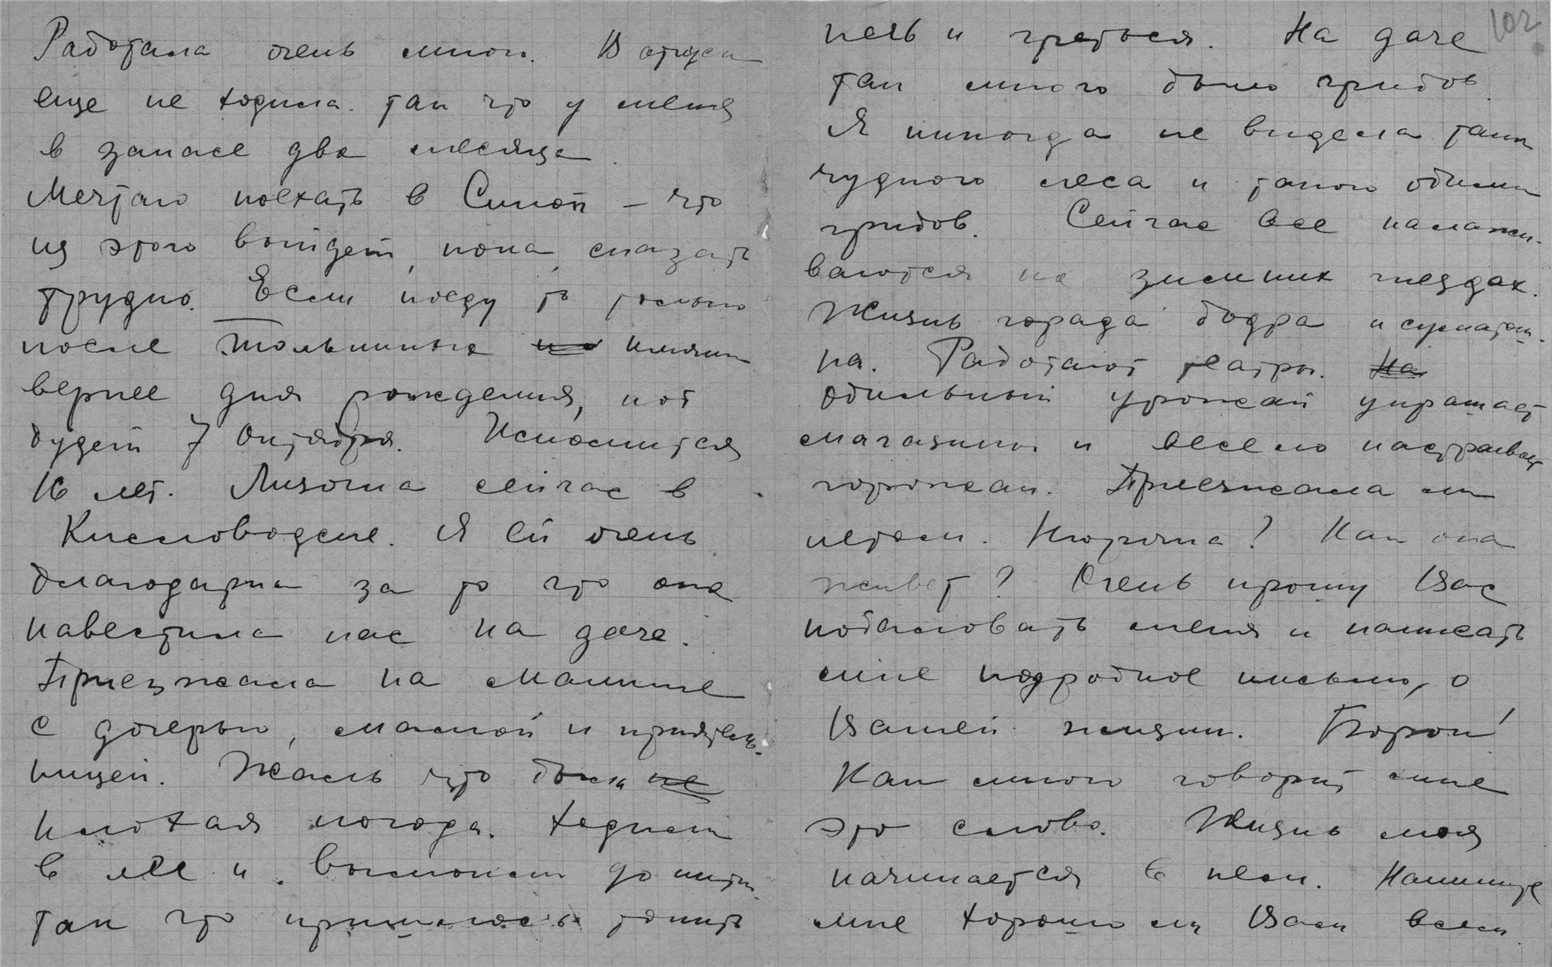 Работала очень много. В отпуск
еще не ходила. Так что у меня
в запасе два месяца.
Мечтаю поехать в Синоп – что
из этого выйдет, пока, сказать
трудно. Если поеду то только
после именин
вернее дня рождения, кот
будет 7 Октября. Исполнится
16 лет. Лизочка сейчас в
Кисловодске. Я ей очень
благодарна за то что она
навестила нас на даче.
Приезжала на машине
с дочерью, мамой и приятель-
ницей. Жаль что была не
плохая погода. Ходили
в лес и вымокли до нитки
так что пришлось топить
102
печь и греться. На даче
так много было грибов.
Я никогда не видела таких
чудного леса и такого обилия
грибов. Сейчас все налажи-
ваются на зимних гнездах.
Жизнь города бодра и суматош-
на. Работают театры. На
Обильный урожай украшает
магазины и весело настраивает
горожан. Приезжала ли
летом Нюрочка? Как она
живет? Очень прошу Вас
побаловать меня и написать
мне подробное письмо, о
Вашей жизни. Борок!
Как много говорит мне
это слово. Жизнь моя
начинается с нем. Напишите
мне хорошо ли Вам всем